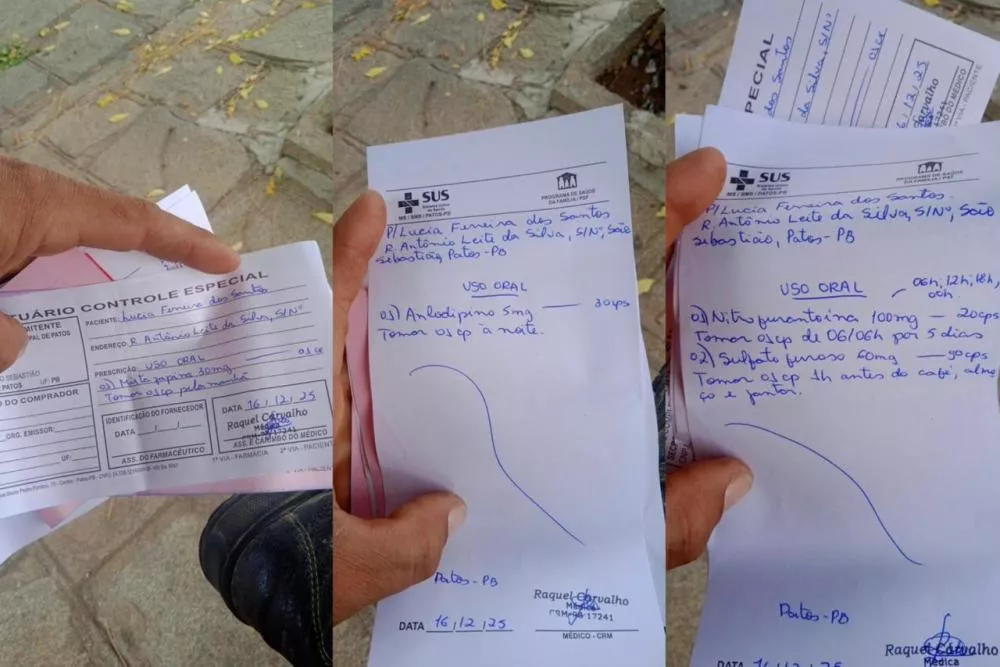 TUÁRIO CONTROLE ESPECIAL
MITENTE
PAL DE PATOS
SEBASTIÃO
PATOS UF: PB
PACIENTE: Lucia Ferreira dos Santos
ENDEREÇO: R. Antônio Leite da Silva, S/Nº
PRESCRIÇÃO: USO ORAL
01) Mirtazapina 30mg 01 cx
Tomar 01 cp pela manhã
DO COMPRADOR
ORG. EMISSOR:
UF:
IDENTIFICAÇÃO DO FORNECEDOR
DATA __/__/__
ASS. DO FARMACÊUTICO
DATA 16/12/25
Raquel Carvalho
Médica
CRM-PB 17241
ASS. E CARIMBO DO MÉDICO
1ª VIA - FARMÁCIA 2ª VIA - PACIENTE
SUS
MS / SMS / PATOS-PB
PROGRAMA DE SAÚDE
DA FAMÍLIA / PSF
P/ Lucia Ferreira dos Santos
R. Antônio Leite da Silva, S/Nº, São
Sebastião, Patos-PB
USO ORAL
01) Anlodipino 5mg — 30cps
Tomar 01 cp à noite.
Patos-PB
DATA 16/12/25
Raquel Carvalho
Médica
CRM-PB 17241
MÉDICO - CRM
PECIAL
dos Santos
da Silva, S/Nº
01 cx
16/12/25
Carvalho
DO MÉDICO
VIA - PACIENTE
SUS
MS / SMS / PATOS-PB
PROGRAMA DE SAÚDE
DA FAMÍLIA / PSF
P/ Lucia Ferreira dos Santos
R. Antônio Leite da Silva, S/Nº, São
Sebastião, Patos-PB
USO ORAL
06h, 12h, 18h,
00h.
01) Nitrofurantoína 100mg — 20cps
Tomar 01 cp de 06/06h por 5 dias
02) Sulfato ferroso 60mg — 90cps
Tomar 01 cp 1h antes do café, almo
ço e jantar.
Patos-PB
Raquel Carvalho
Médica
DATA 16/12/25